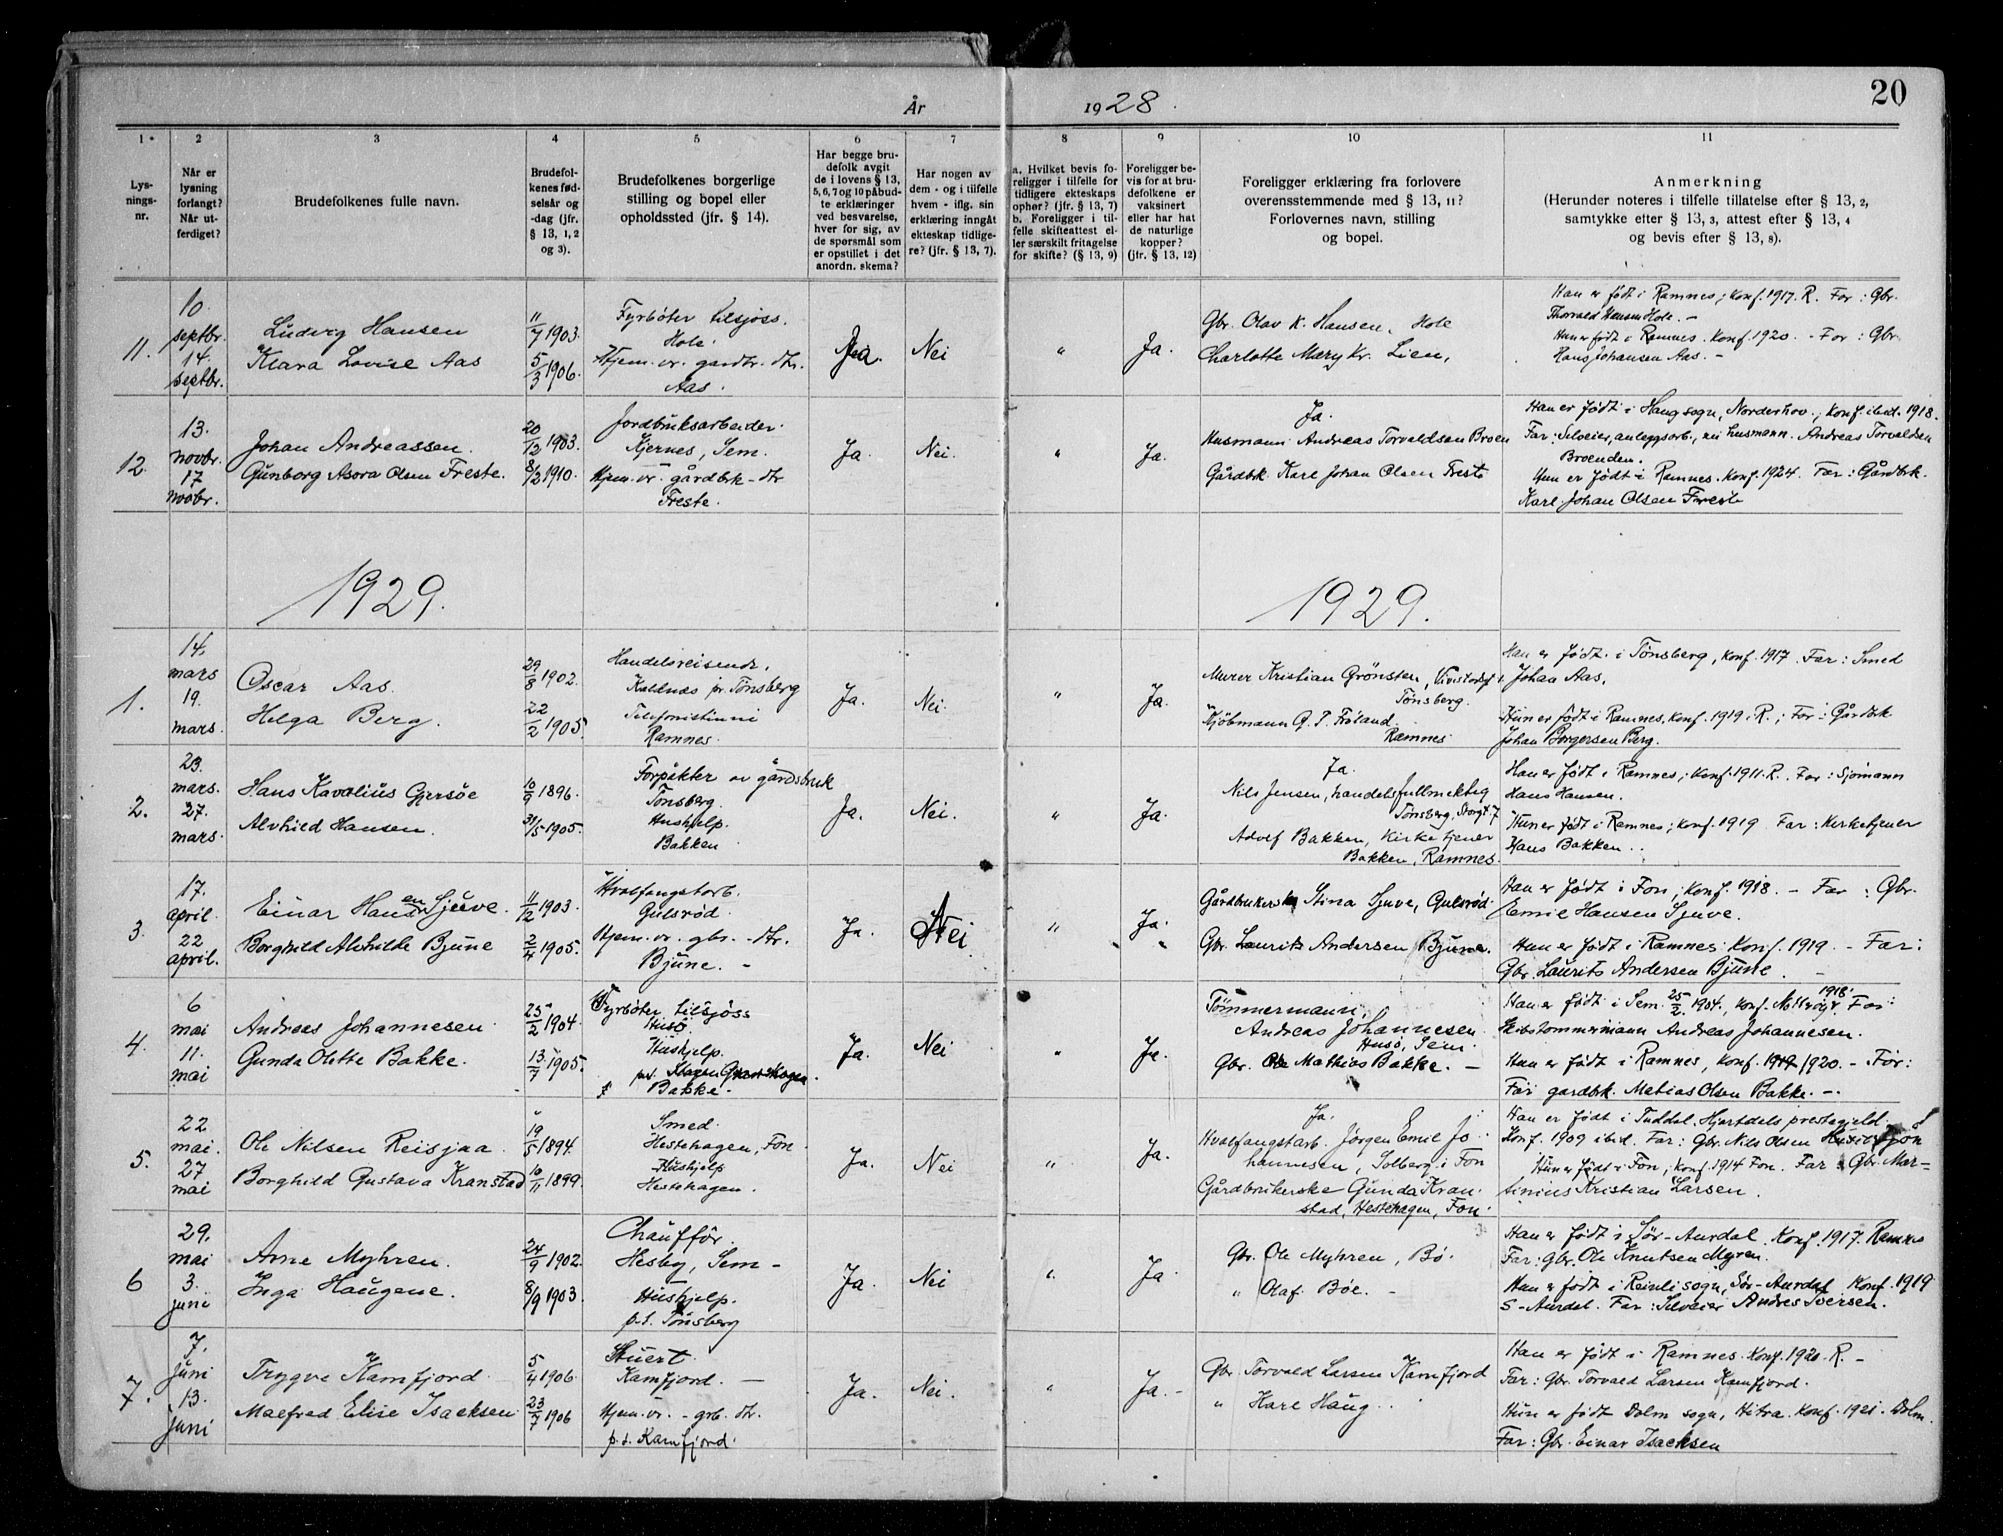 År 1928.
20
1 2 3 4 5 6 7 8 9 10 11
Lys-
nings-
nr.
Når er
lysning
forlangt?
Når ut-
ferdiget?
Brudefolkenes fulle navn.
Brudefol-
kenes fød-
selsår og
-dag (jfr.
§ 13, 1, 2
og 3).
Brudefolkenes borgerlige
stilling og bopel eller
opholdssted (jfr. § 14).
Har begge bru-
defolk avgit
de i lovens § 13,
5, 6, 7 og 10 påbud-
te erklæringer
ved besvarelse,
hver for sig, av
de spørsmål som
er opstillet i det
anordn. skema?
Har nogen av
dem - og i tilfelle
hvem - iflg. sin
erklæring inngått
ekteskap tidlige-
re? (jfr. § 13, 7).
a. Hvilket bevis fo-
religger i tilfelle for
tidligere ekteskaps
ophør? (jfr. § 13, 7)
b. Foreligger i til-
felle skifteattest el-
ler særskilt fritagelse
for skifte? (§ 13, 9)
Foreligger be-
vis for at bru-
defolkene er
vaksinert
eller har hat
de naturlige
kopper?
(jfr. § 13, 12)
Foreligger erklæring fra forlovere
overensstemmende med § 13, 11?
Forlovernes navn, stilling
og bopel.
Anmerkning
(Herunder noteres i tilfelle tillatelse efter § 13, 2,
samtykke efter § 13, 3, attest efter § 13, 4
og bevis efter § 13, 8).
11.
10
septbr.
14.
septbr.
Ludvig Hansen
Klara Lovise Aas
11/7 1903.
5/3 1906.
Fyrbøter tilsjøss.
Hole.
Hjem. vr. gardbr. dtr.
Aas.
Ja.
Nei
"
Ja.
Gbr. Olav K. Hansen, Hole
Charlotte Mary Kr. Lien,
Han er født i Ramnes; konf. 1917. R. Far: Gbr.
Thorvald Hansen Hole. –
Hun er født i Ramnes. Konf. 1920. – Far: Gbr.
Hans Johansen Aas. –
12.
13.
novbr.
17
novbr.
Johan Andreassen.
Gunborg Asora Olsen Freste.
20/12 1903.
8/12 1910.
Jordbruksarbeider.
Kjernes, Sem.
Hjem. vr. gårdbrk - dtr
Freste.
Ja.
Nei.
"
Ja.
Ja.
Husmann Andreas Torvaldsen Broen
Gårdbrk. Karl Johan Olsen Freste
Han er født i Haug sogn, Norderhov; konf. ibid. 1918.
Far: Selveier, anleggsarb., nu husmann. Andreas Torvaldsen
Broenden.
Hun er født i Ramnes. konf. 1924. Far: Gårdbrk.
Karl Johan Olsen Freste
1929. 1929.
1.
14.
mars
19.
mars.
Oscar Aas.
Helga Berg.
29/8 1902.
22/2 1905.
Handelsreisende.
Kaldnæs pr. Tønsberg
Telefonistinni
Ramnes.
Ja.
Nei.
"
Ja.
Murer Kristian Grönsten,
Tønsberg.
Kjöbmann G. T. Fröland.
Ramnes.
Han er født i Tønsberg, konf. 1917. Far: Smed
Johan Aas.
Hun er født i Ramnes, konf. 1919. R.; Far: Gårdbrk
Johan Borgersen Berg.
2.
23.
mars.
27.
mars.
Hans Kavalius Gjersöe
Alvhild Hansen.
10/9 1896.
31/5 1905.
Forpakter av gårdsbruk
Tønsberg.
Hushjelp.
Bakken
Ja.
Nei.
"
Ja.
Ja.
Nils Jensen, handelsfullmektig
Tønsberg, Storgt. 7
Adolf Bakken, Kirketjener
Bakken, Ramnes.
Han er født i Ramnes; konf. 1911. R. Far: Sjømann
Hans Hansen.
Hun er født i Ramnes; konf. 1919 Far: Kirketjener
Hans Bakken.
3.
17.
april.
22
april.
Einar Hansen Sjuve.
Borghild Alvhilde Bjune
11/12 1903.
2/4 1905.
Hvalfangstarb.
Gulsrød.
Hjem. vr. gbr. - dtr.
Bjune. –
Ja.
Nei
"
Ja.
Gårdbrukerske Stina Sjuve, Gulsrød.
Gbr. Laurits Andersen Bjune.
Han er født i Fon; konf. 1918. – Far: Gbr.
Emil Hansen Sjuve.
Hun er født i Ramnes. Konf. 1919. – Far:
Gbr. Laurits Andersen Bjune. –
4.
6
mai
11.
mai
Andreas Johannesen.
Gunda Olette Bakke.
25/2 1904.
13/7 1905.
Fyrbøter tilsjøss
Husø.
Hushjelp.
Bakke.
Ja.
Nei
"
Ja.
Tömmermann,
Andreas Johannesen
Husø, Sem.
Gbr. Ole Mathias Bakke. –
Han er født i Sem 25/2 1904, konf. Nøtterøy 1918. Far:
Skibstømmermann Andreas Johannesen.
Hun er født i Ramnes, konf. 1920. – Far:
Far gardbrk. Matias Olsen Bakke. –
5.
22
mai.
27
mai
Ole Nilsen Reisjaa
Borghild Gustava Kranstad
19/5 1894.
10/11 1899.
Smed.
Hestehagen, Fon
Hushjelp
Hestehagen.
Ja.
Nei
"
Ja.
Ja.
Hvalfangstarb. Jörgen Emil Jo-
hannesen, Solberg i Fon
Gårdbrukerske Gunda Kran-
stad, Hestehagen, Fon.
Han er født i Tuddal, Hjartdals prestegjeld.
Konf. 1909 ibid. Far: Gbr. Nils Olsen
Hun er født i Fon; konf. 1914 Fon. Far: Gbr. Mar-
tinius Kristian Larsen.
6
29.
mai
3.
juni
Arne Myhren.
Inga Haugene.
24/9 1902.
8/9 1903.
Chauffør.
Hesby, Sem –
Hushjelp.
p.t. Tønsberg
Ja.
Nei
"
Ja
Gbr. Ole Myhren, Bø.
" Olaf Bøe. –
Han er født i Sør-Aurdal. Konf. 1917. Ramnes
Far: Gbr. Ole Knutsen Myren.
Hun er født i Reinli sogn, Sør-Aurdal Konf. 1919
S-Aurdal. Far: Selveier Andres Iversen.
7.
7.
juni
13.
juni
Trygve Kamfjord
Malfred Elise Isacksen
5/4 1906.
23/7 1906
Stuert.
Kamfjord. –
Hjem. vr. - grb. dtr.
p.t. Kamfjord.
Ja.
Nei.
"
Ja. –
Gbr. Torvald Larsen Kamfjord
" Karl Haug
Han er født i Ramnes. Konf. 1920. R. –
Far: Gbr. Torvald Larsen Kamfjord.
Hun er født Dolm sogn, Hitra. Konf. 1921. Dolm.
Far: Gbr. Einar Isacksen